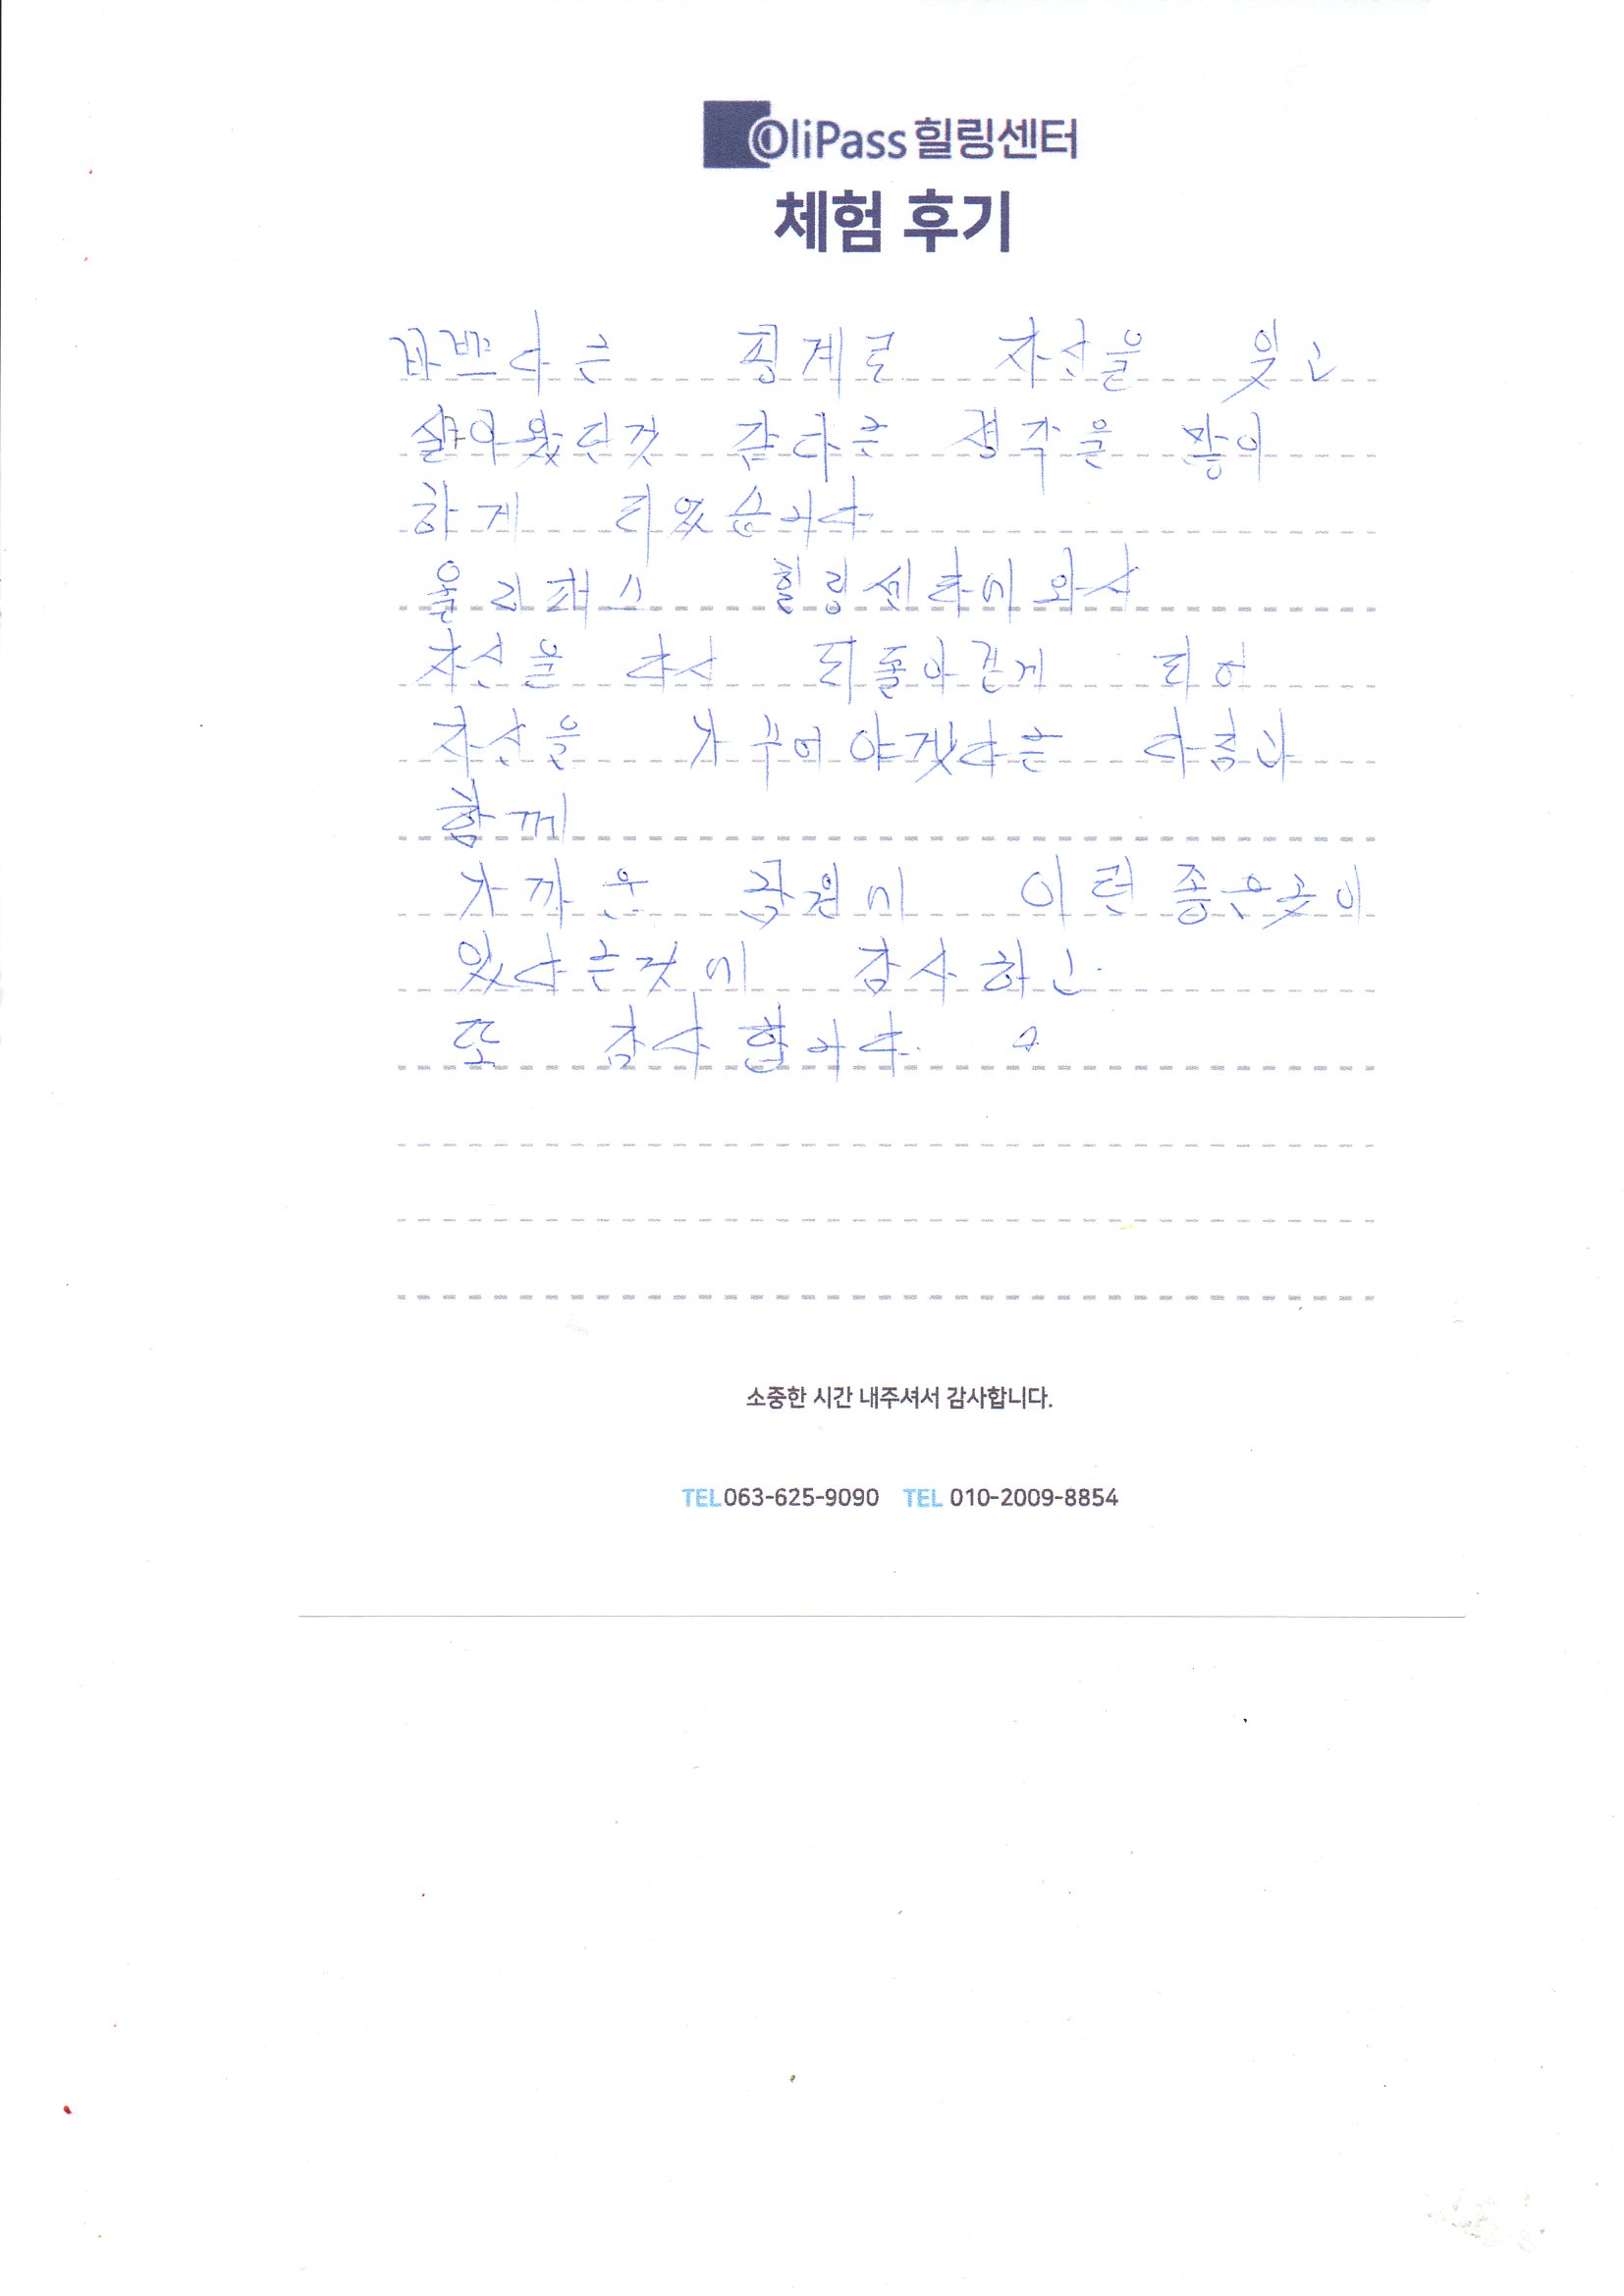 OliPass 힐링센터
체험 후기
바쁘다는 핑계로 자신을 잊고
살아왔던것 같다는 생각을 많이
하게 되었습니다
올리패스 힐링센타에 와서
자신을 다시 되돌아보게 되어
자신을 가꾸어야겠다는 다짐과
함께
가까운 곡원에 이런 좋은곳이
있다는것에 감사하고
또 감사합니다.
소중한 시간 내주셔서 감사합니다.
TEL 063-625-9090 TEL 010-2009-8854